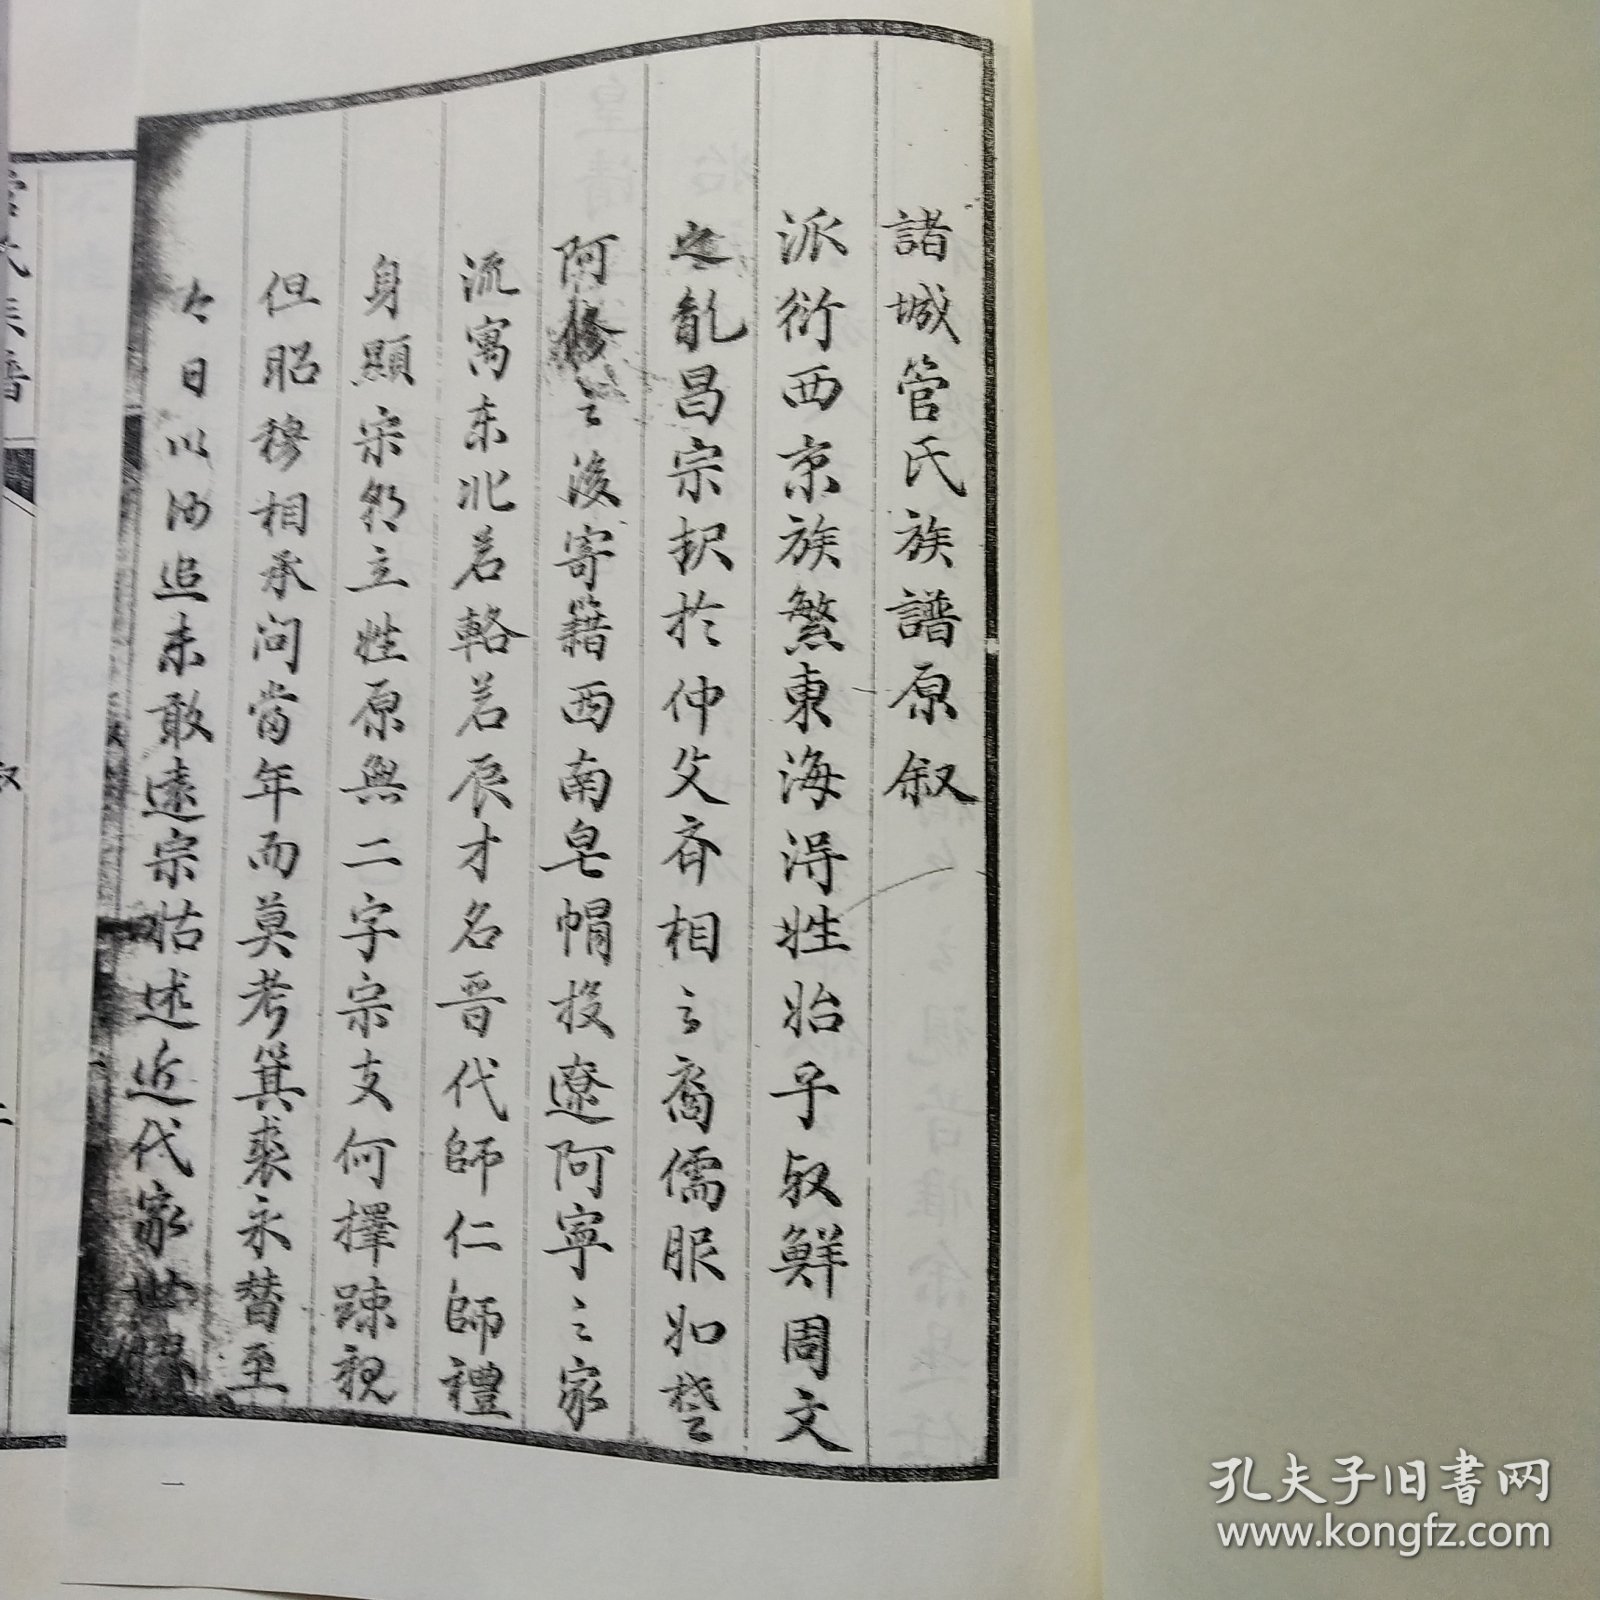 諸城管氏族譜原叙
派衍西京族繁東海得姓始乎叔鮮周文
之亂昌宗択於仲父齐相之裔儒服如楚
阿之後寄籍西南皂帽投遼阿寧之家
流寓东北若輅若辰才名晋代師仁師禮
身顯宋朝立姓原無二字宗支何擇踈親
但昭穆相承问當年而莫考箕裘永替至
今日以追未敢遠宗姑述近代家世
氏族譜
叙
一
孔夫子旧书网
www.kongfz.com